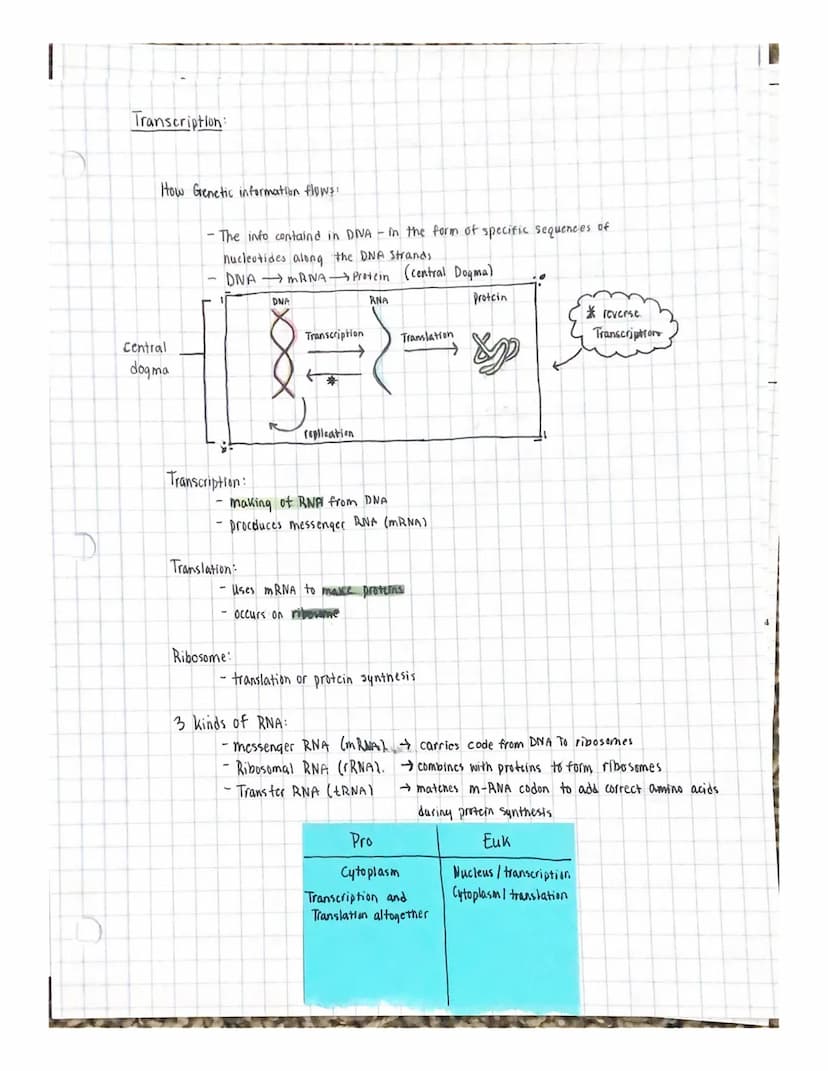 Transcription:
How Genetic information flows:
- The info containd in DNA - in the form of specific sequences of
nucleotides along the DNA strands
- DNA → mRNA → Protein (central Dogma)
DNA
RNA
Protein
* reverse
Transcription
Transcription
Translation
central
dogma
*
replication
Transcription:
- making of RNA from DNA
- procduces messenger RNA (mRNA)
Translation:
- uses mRNA to make proteins
- occurs on ribosome
Ribosome:
- translation or protein synthesis
3 kinds of RNA:
- messenger RNA (mRNA). → carries code from DNA To ribosomes
- Ribosomal RNA (rRNA). → combines with proteins to form ribosomes
- Transfer RNA (tRNA) → matches m-RNA codon to add correct amino acids
during protein synthesis
Pro
Euk
Cytoplasm
Nucleus / transcription
Transcription and
Cytoplasm / translation
Translation altogether